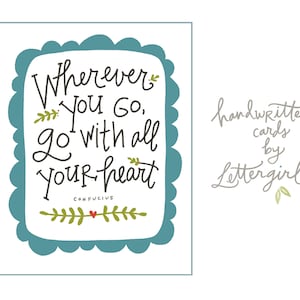 Wherever
you go,
go with all
your heart
CONFUCIUS
handwritten
cards
by
Lettergirl